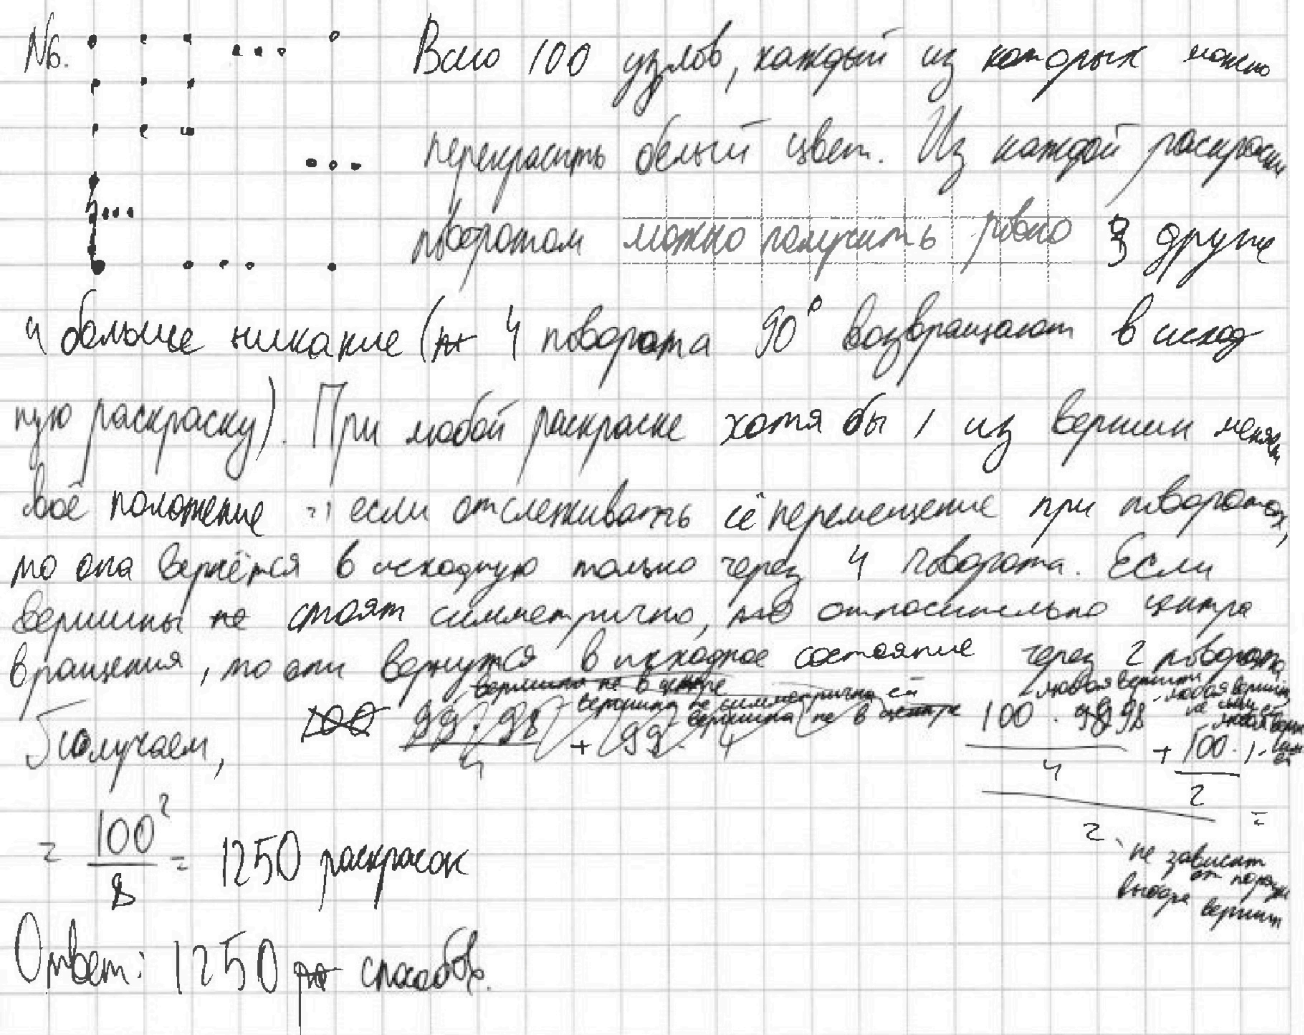 №6. Всего 100 узлов, каждый из которых можно
перекрасить белый цвет. Из каждой раскраски
поворотом можно получить ровно 3 другие
и больше никакие (4 поворота 90° возвращают в исход
ную раскраску). При любой раскраске хотя бы 1 из вершин меняет
своё положение если отслеживать её перемещение при поворотах,
то она вернётся в исходную только через 4 поворота. Если
вершины стоят симметрично, относительно центра
вращения, то они вернутся в исходное состояние через 2 поворота.
вершина не в центре
вершина не симметрична ей
вершина не в центре
любая вершина
любая вершина
Получаем, 100 99·98/4 + 99· 4 (100·98/4 + 100·1/2)/2 =
= 100²/8 = 1250 раскрасок
не зависит
от порядка
выбора вершин
Ответ: 1250 способов.